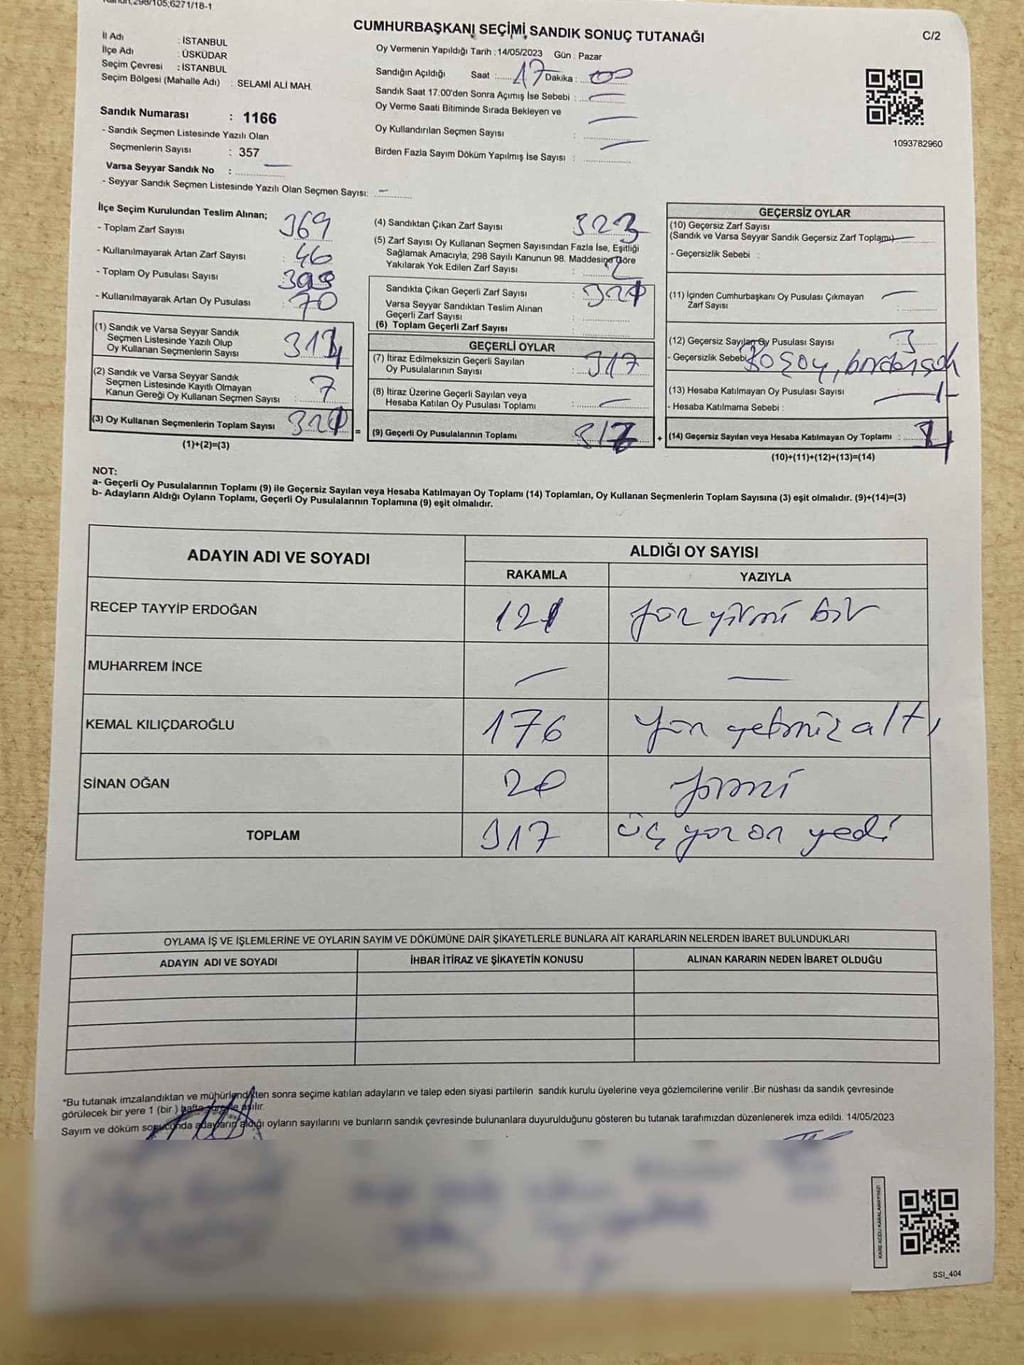 CUMHURBAŞKANI SEÇİMİ SANDIK SONUÇ TUTANAĞI
C/2
İl Adı : İSTANBUL
İlçe Adı : ÜSKÜDAR
Seçim Çevresi : İSTANBUL
Seçim Bölgesi (Mahalle Adı) : SELAMİ ALİ MAH.
Sandık Numarası : 1166
- Sandık Seçmen Listesinde Yazılı Olan
Seçmenlerin Sayısı : 357
Varsa Seyyar Sandık No :
- Seyyar Sandık Seçmen Listesinde Yazılı Olan Seçmen Sayısı:
Oy Vermenin Yapıldığı Tarih : 14/05/2023 Gün : Pazar
Sandığın Açıldığı Saat : 17 Dakika : 00
Sandık Saat 17.00'den Sonra Açımış İse Sebebi :
Oy Verme Saati Bitiminde Sırada Bekleyen ve
Oy Kullandırılan Seçmen Sayısı :
Birden Fazla Sayım Döküm Yapılmış İse Sayısı :
1093782960
İlçe Seçim Kurulundan Teslim Alınan;
- Toplam Zarf Sayısı : 369
- Kullanılmayarak Artan Zarf Sayısı : 46
- Toplam Oy Pusulası Sayısı :
- Kullanılmayarak Artan Oy Pusulası : 70
(1) Sandık ve Varsa Seyyar Sandık
Seçmen Listesinde Yazılı Olup
Oy Kullanan Seçmenlerin Sayısı : 314
(2) Sandık ve Varsa Seyyar Sandık
Seçmen Listesinde Kayıtlı Olmayan
Kanun Gereği Oy Kullanan Seçmen Sayısı : 7
(3) Oy Kullanan Seçmenlerin Toplam Sayısı : 321
(1)+(2)=(3)
(4) Sandıktan Çıkan Zarf Sayısı : 323
(5) Zarf Sayısı Oy Kullanan Seçmen Sayısından Fazla İse, Eşitliği
Sağlamak Amacıyla, 298 Sayılı Kanunun 98. Maddesine Göre
Yakılarak Yok Edilen Zarf Sayısı : 2
Sandıkta Çıkan Geçerli Zarf Sayısı : 321
Varsa Seyyar Sandıktan Teslim Alınan
Geçerli Zarf Sayısı :
(6) Toplam Geçerli Zarf Sayısı :
GEÇERLİ OYLAR
(7) İtiraz Edilmeksizin Geçerli Sayılan
Oy Pusulalarının Sayısı : 317
(8) İtiraz Üzerine Geçerli Sayılan veya
Hesaba Katılan Oy Pusulası Toplamı :
= (9) Geçerli Oy Pusulalarının Toplamı : 317
GEÇERSİZ OYLAR
(10) Geçersiz Zarf Sayısı
(Sandık ve Varsa Seyyar Sandık Geçersiz Zarf Toplamı)
- Geçersizlik Sebebi :
(11) İçinden Cumhurbaşkanı Oy Pusulası Çıkmayan
Zarf Sayısı :
(12) Geçersiz Sayılan Oy Pusulası Sayısı : 3
- Geçersizlik Sebebi
(13) Hesaba Katılmayan Oy Pusulası Sayısı : 1
- Hesaba Katılmama Sebebi :
+ (14) Geçersiz Sayılan veya Hesaba Katılmayan Oy Toplamı : 4
(10)+(11)+(12)+(13)=(14)
NOT:
a- Geçerli Oy Pusulalarının Toplamı (9) ile Geçersiz Sayılan veya Hesaba Katılmayan Oy Toplamı (14) Toplamları, Oy Kullanan Seçmenlerin Toplam Sayısına (3) eşit olmalıdır. (9)+(14)=(3)
b- Adayların Aldığı Oyların Toplamı, Geçerli Oy Pusulalarının Toplamına (9) eşit olmalıdır.
ADAYIN ADI VE SOYADI
ALDIĞI OY SAYISI
RAKAMLA YAZIYLA
RECEP TAYYİP ERDOĞAN 121 yüz yirmi bir
MUHARREM İNCE — —
KEMAL KILIÇDAROĞLU 176 yüz yetmiz altı
SİNAN OĞAN 20 yirmi
TOPLAM 317 üç yüz on yedi
OYLAMA İŞ VE İŞLEMLERİNE VE OYLARIN SAYIM VE DÖKÜMÜNE DAİR ŞİKAYETLERLE BUNLARA AİT KARARLARIN NELERDEN İBARET BULUNDUKLARI
ADAYIN ADI VE SOYADI İHBAR İTİRAZ VE ŞİKAYETİN KONUSU ALINAN KARARIN NEDEN İBARET OLDUĞU
*Bu tutanak imzalandıktan ve mühürlendikten sonra seçime katılan adayların ve talep eden siyasi partilerin sandık kurulu üyelerine veya gözlemcilerine verilir .Bir nüshası da sandık çevresinde
görülecek bir yere 1 (bir ) hafta süreyle asılır.
Sayım ve döküm sonucunda adayların aldığı oyların sayılarını ve bunların sandık çevresinde bulunanlara duyurulduğunu gösteren bu tutanak tarafımızdan düzenlenerek imza edildi. 14/05/2023
SSI_404